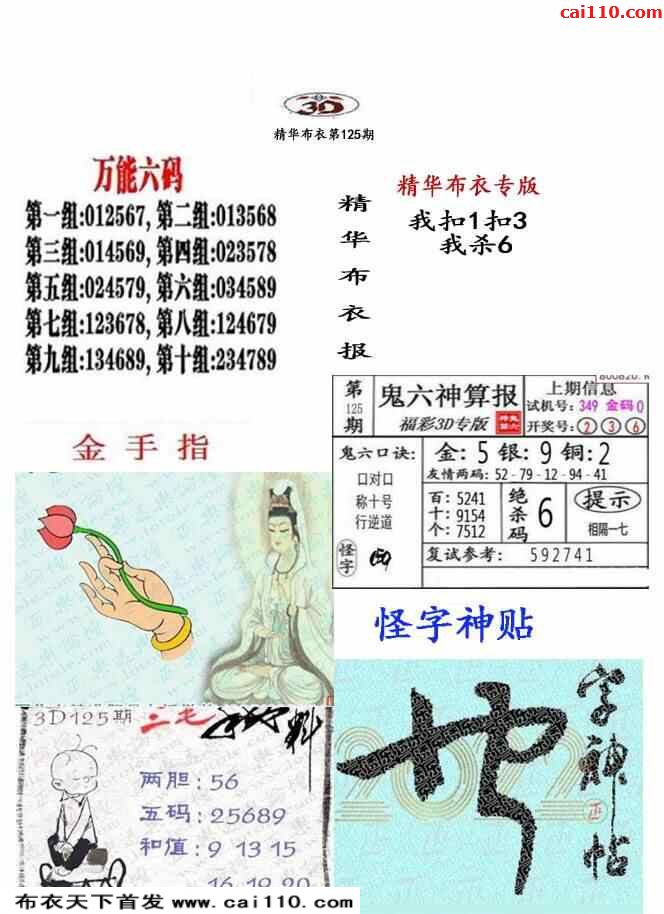 cai110.com
3D
精华布衣第125期
万能六码
第一组:012567,第二组:013568
第三组:014569,第四组:023578
第五组:024579,第六组:034589
第七组:123678,第八组:124679
第九组:134689,第十组:234789
精华布衣报
精华布衣专版
我扣1扣3
我杀6
金手指
第125期
鬼六神算报
福彩3D专版
上期信息
试机号:349 金码0
开奖号:②③⑥
鬼六口诀:
口对口
称十号
行逆道
怪字
金:5 银:9 铜:2
友情两码:52-79-12-94-41
百:5241
十:9154
个:7512
绝杀码
6
提示
相隔一七
复试参考: 592741
怪字神贴
字神帖
正
2022
3D125期
两胆:56
五码:25689
和值:9 13 15
16 19 20
布衣天下首发 www.cai110.com